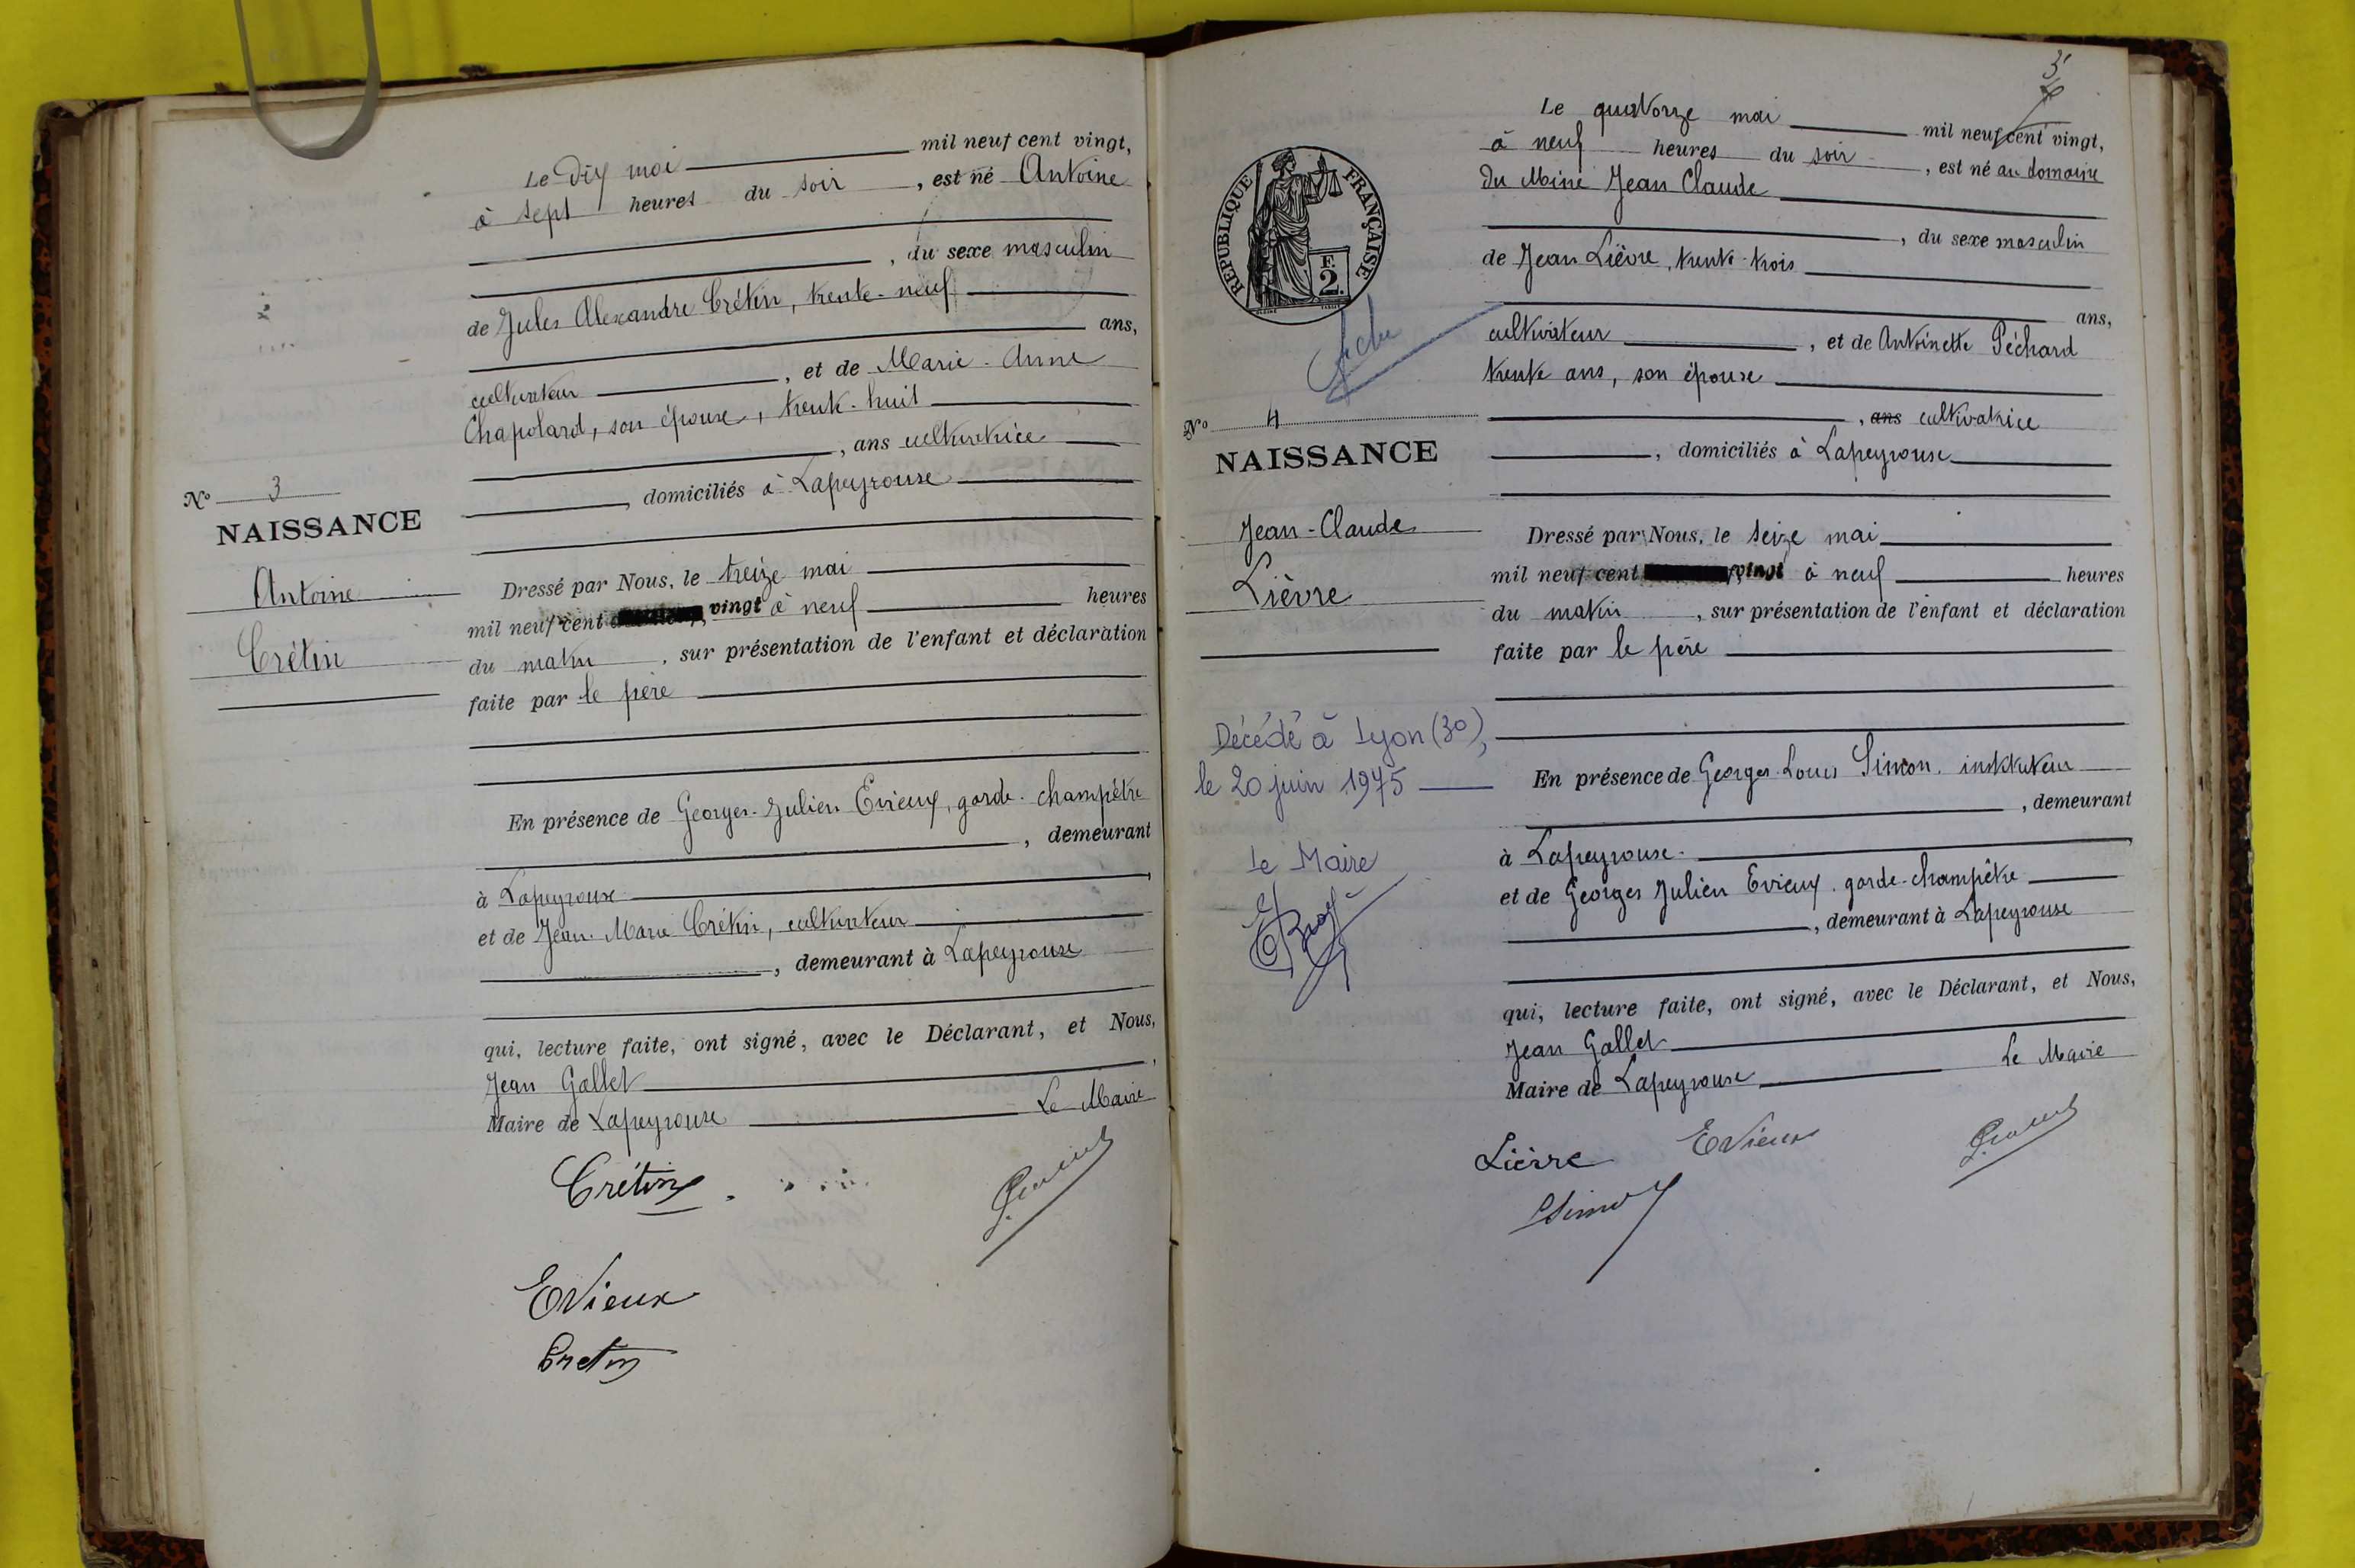 Le dix mai mil neuf cent vingt,
à sept heures du soir, est né Antoine
, du sexe masculin
de Jules Alexandre Crétin, trente-neuf
ans,
cultivateur, et de Marie-Anne
Chapolard, son épouse, trente-huit
, ans cultivatrice
, domiciliés à Lapeyrouse
No 3
NAISSANCE
Antoine
Crétin
Dressé par Nous, le treize mai
mil neuf cent vingt à neuf heures
du matin, sur présentation de l'enfant et déclaration
faite par le père
En présence de Georges-Julien Evieux, garde-champêtre
, demeurant
à Lapeyrouse
et de Jean-Marie Crétin, cultivateur
, demeurant à Lapeyrouse
qui, lecture faite, ont signé, avec le Déclarant, et Nous,
Jean Gallet,
Maire de Lapeyrouse Le Maire
Crétin
Evieux
Cretin
3
Le quatorze mai mil neuf cent vingt,
à neuf heures du soir, est né au domaine
du Mine Jean Claude
, du sexe masculin
de Jean Lièvre, trente-trois
ans,
cultivateur, et de Antoinette Péchard
trente ans, son épouse
, ans cultivatrice
, domiciliés à Lapeyrouse
RÉPUBLIQUE FRANÇAISE
F.
2.
fiche
No 4
NAISSANCE
Jean-Claude
Lièvre
Décédé à Lyon (3e),
le 20 juin 1975
Le Maire
Dressé par Nous, le seize mai
mil neuf cent vingt à neuf heures
du matin, sur présentation de l'enfant et déclaration
faite par le père
En présence de Georges-Louis Simon, instituteur
, demeurant
à Lapeyrouse
et de Georges Julien Evieux, garde-champêtre
, demeurant à Lapeyrouse
qui, lecture faite, ont signé, avec le Déclarant, et Nous,
Jean Gallet
Maire de Lapeyrouse Le Maire
Lièvre Evieux
Simon